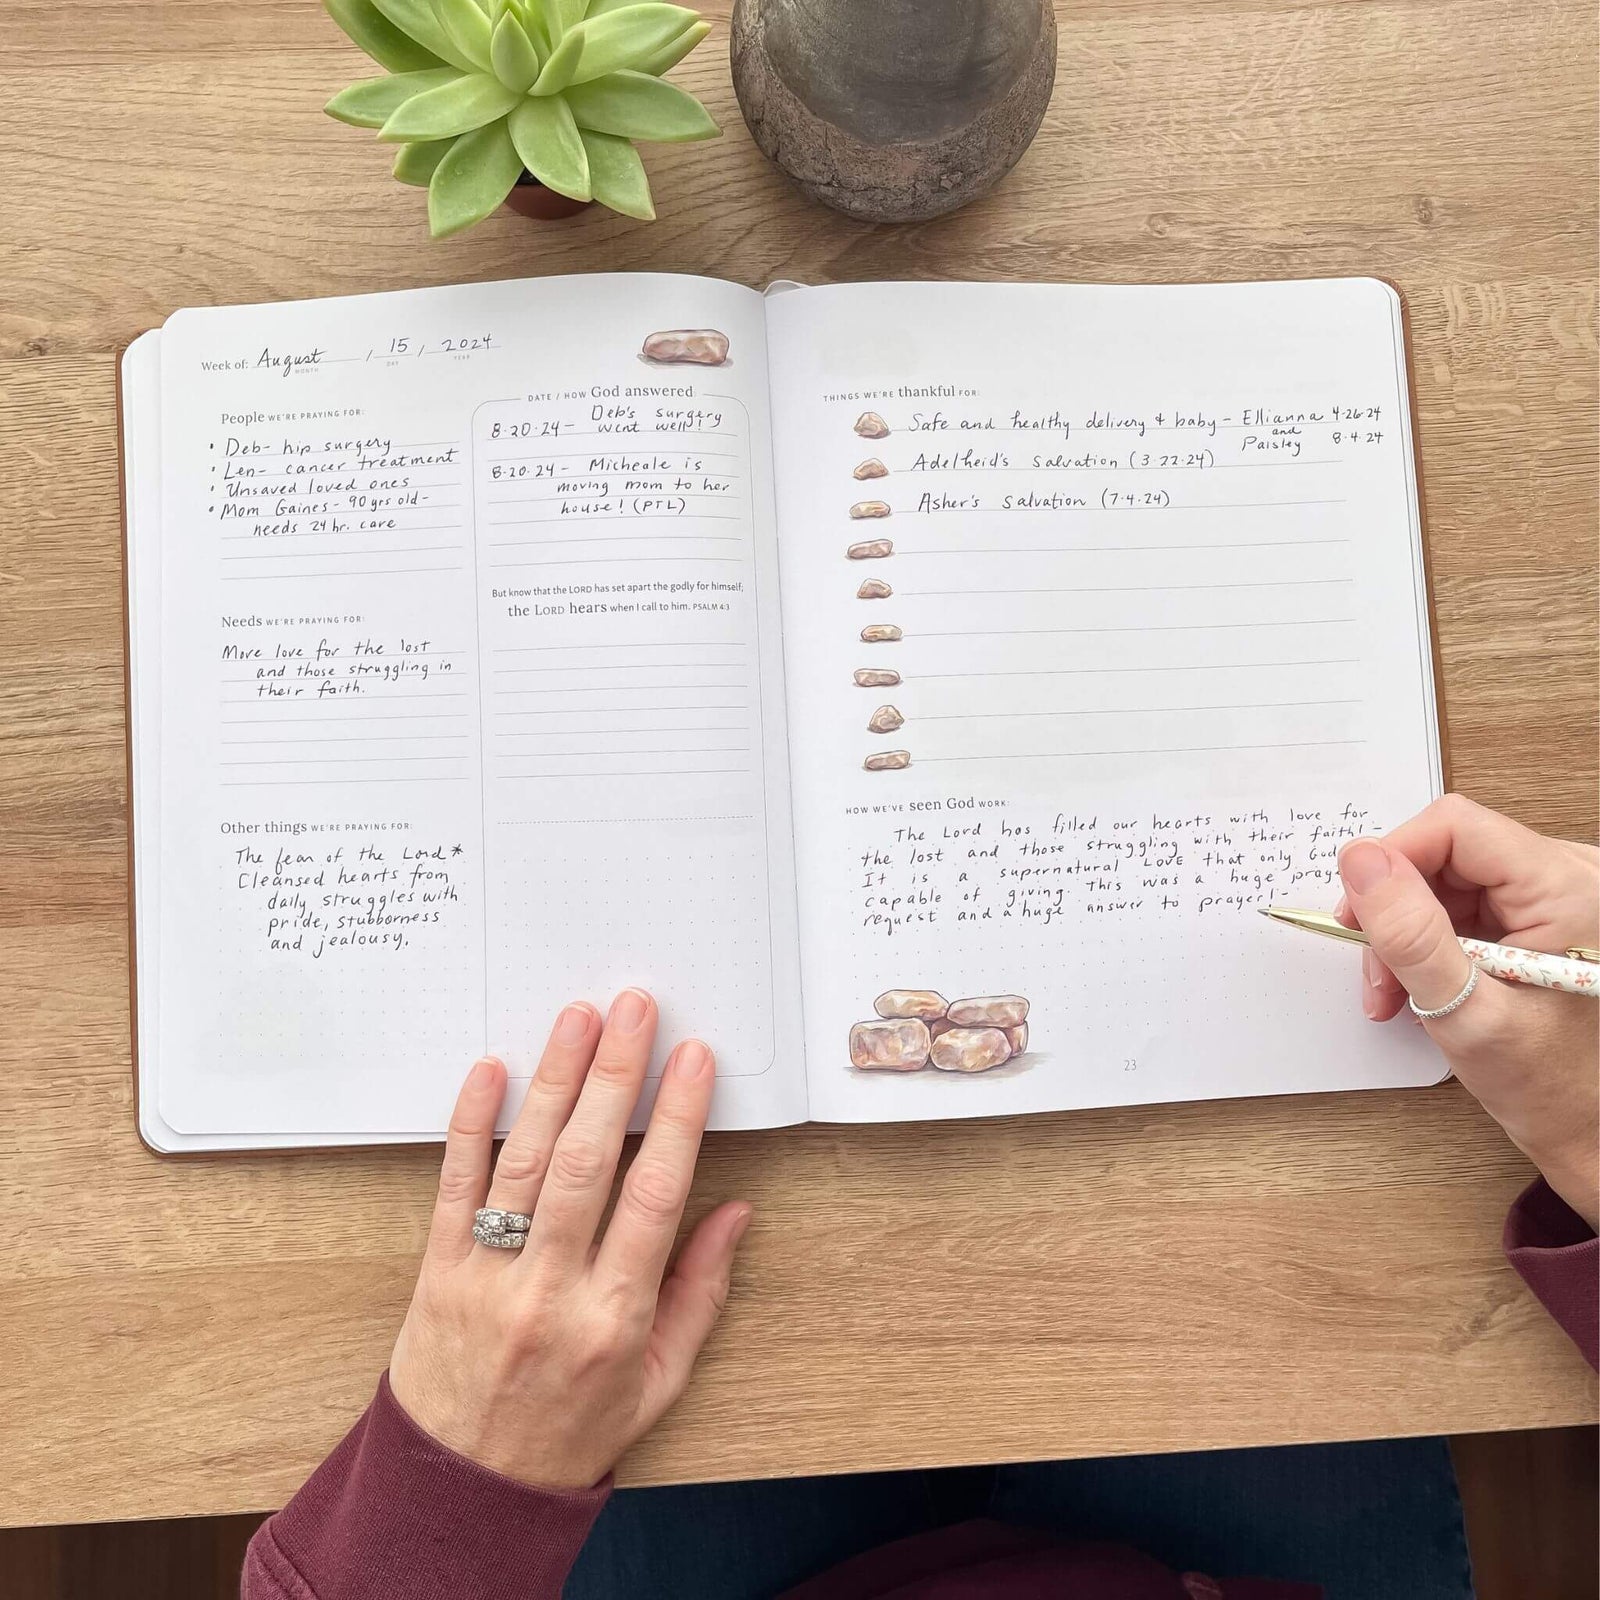 Week of: August / 15 / 2024
MONTH DAY YEAR
People WE'RE PRAYING FOR:
• Deb- hip surgery
• Len- cancer treatment
• Unsaved loved ones
• Mom Gaines- 90 yrs old-
needs 24 hr. care
Needs WE'RE PRAYING FOR:
More love for the lost
and those struggling in
their faith.
Other things WE'RE PRAYING FOR:
The fear of the Lord *
Cleansed hearts from
daily struggles with
pride, stubborness
and jealousy.
DATE / HOW God answered
Deb's surgery
8·20·24- went well!
8·20·24- Micheale is
moving mom to her
house! (PTL)
But know that the LORD has set apart the godly for himself;
the LORD hears when I call to him. PSALM 4:3
THINGS WE'RE thankful FOR:
Safe and healthy delivery & baby- Ellianna 4·26·24
and
Paisley 8·4·24
Adelheid's salvation (3·22·24)
Asher's salvation (7·4·24)
HOW WE'VE seen God WORK:
The Lord has filled our hearts with love for
the lost and those struggling with their faith!-
It is a supernatural LOVE that only God
capable of giving. This was a huge
request and a huge answer to prayer!-
23